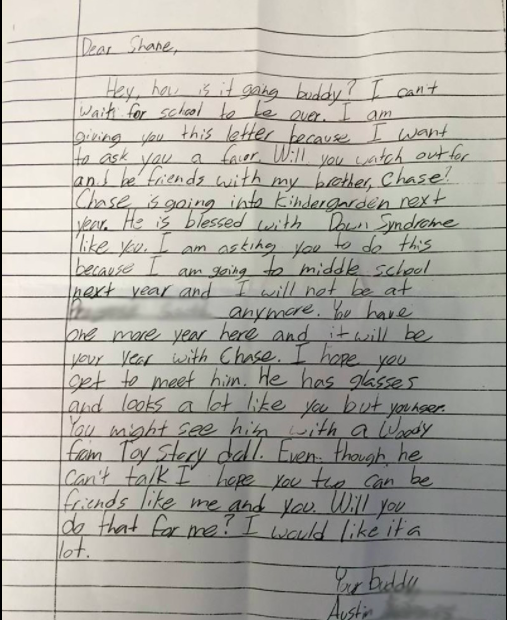 Dear Shane,
Hey, how is it going buddy? I can't
wait for school to be over. I am
giving you this letter because I want
to ask you a favor. Will you watch out for
and be friends with my brother, Chase?
Chase is going into Kindergarden next
year. He is blessed with Down Syndrome
like you. I am asking you to do this
because I am going to middle school
next year and I will not be at
anymore. You have
one more year here and it will be
your year with Chase. I hope you
get to meet him. He has glasses
and looks a lot like you but younger.
You might see him with a Woody
from Toy Story doll. Even though he
can't talk I hope you two can be
friends like me and you. Will you
do that for me? I would like it a
lot.
Your buddy
Austin